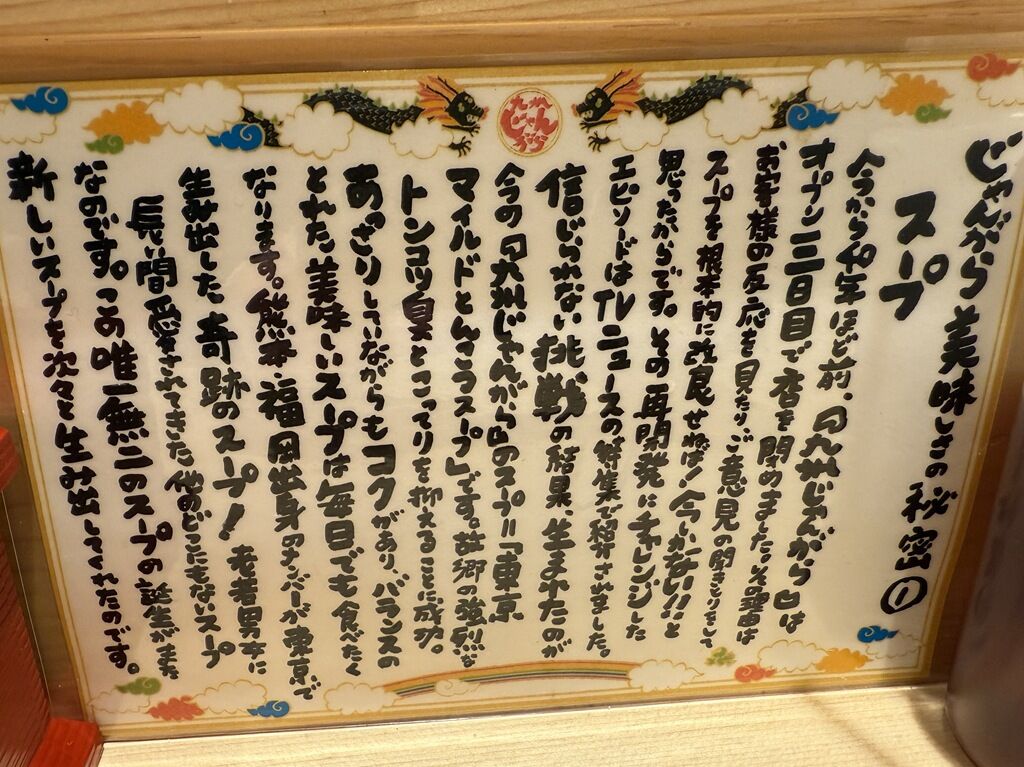 九州じゃんがら
じゃんがら美味しさの秘密①
スープ
今から40年ほど前、「九州じゃんがら」は
オープン三日目で店を閉めました。その理由は
お客様の反応を見たり、ご意見の聞きとりをして
スープを根本的に改良せねば!今しかない!!と
思ったからです。その再開発にチャレンジした
エピソードはTVニュースの特集で紹介されました。
信じられない挑戦の結果、生まれたのが
今の「九州じゃんがら」のスープ=「東京
マイルドとんこつスープ」です。故郷の強烈な
トンコツ臭とこってりを抑えることに成功。
あっさりしていながらもコクがあり、バランスの
とれた美味しいスープは毎日でも食べたく
なります。熊本、福岡出身のメンバーが東京で
生み出した奇跡のスープ!老若男女に
長い間愛されてきた他のどこにもないスープ
なのです。この唯一無二のスープの誕生がまた
新しいスープを次々と生み出してくれたのです。